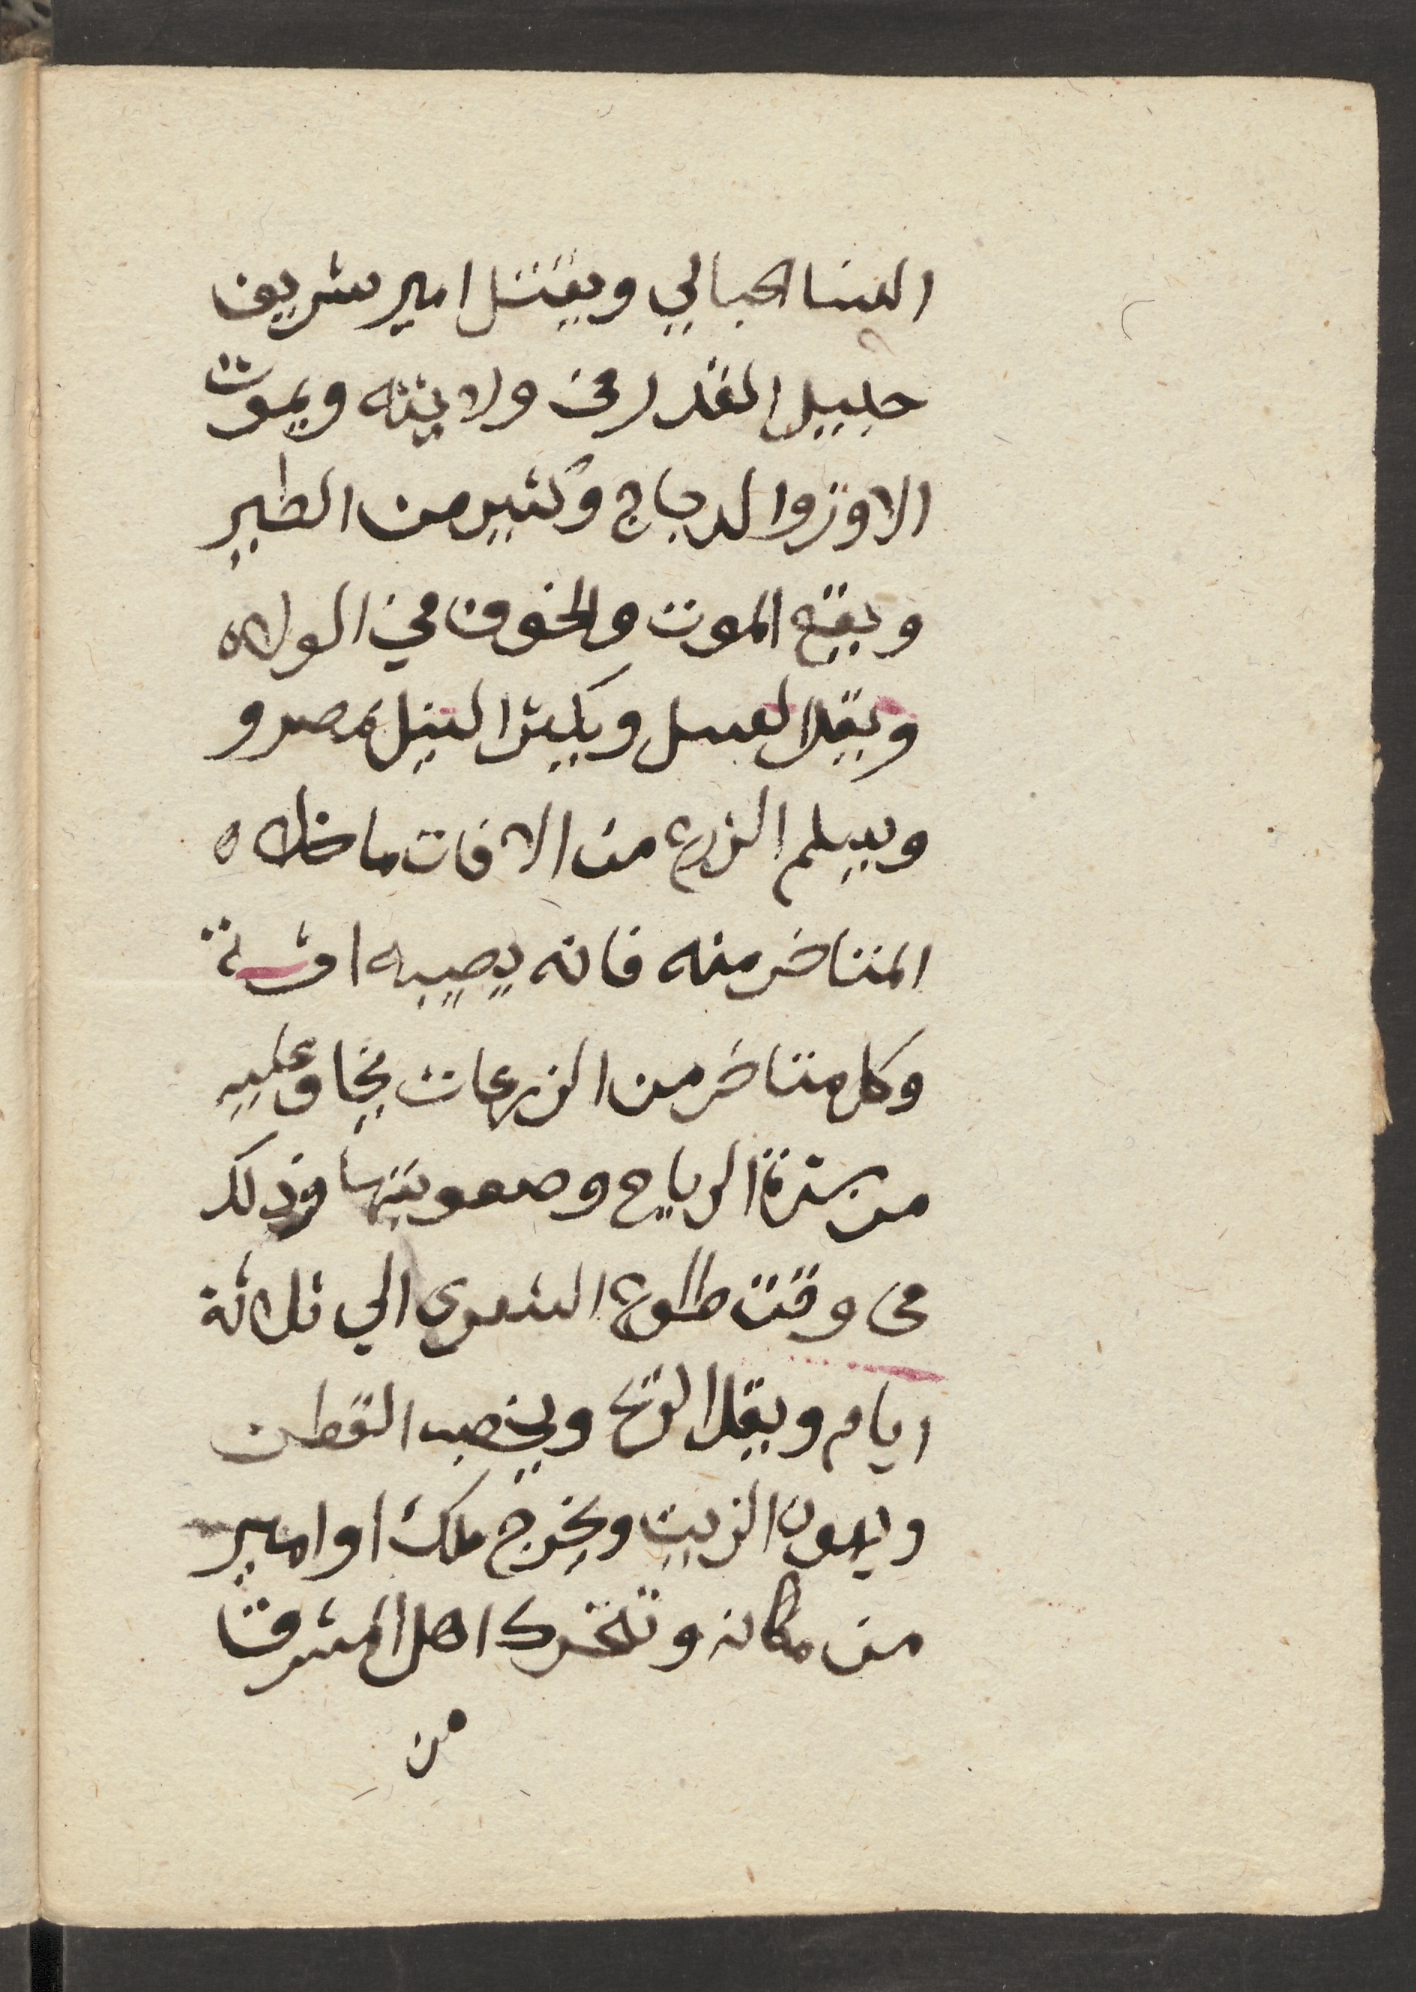 النسا الحبالي ويقتل امير شريف
جليل القدر في ولايته ويموت
الاوز والدجاج وكثير من الطير
ويقع الموت والخوف في الولاه
ويقل العسل ويكثر النيل بمصر و
ويسلم الزرع من الافات ما خلا ه
المتاخر منه فانه يصيبه افة
وكل متاخر من الزرعات يخاف عليه
من الرياح وصعوبتها وذلك
في وقت طلوع الشعري الي ثلاثة
ايام ويقل القرع ويخصب القطن
ويهون الزيت ويخرج ملك او امير
من مكانه وتتحرك اهل المشرق
من